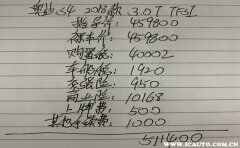 奥迪S4 2018款 3.0T TFSI
指导价: 459800
裸车价: 459800
购置税: 40002
车船税: 1920
交强险: 950
商业险: 10168
上牌费: 500
其他杂费: 1000
511400
www.icauto.com.cn